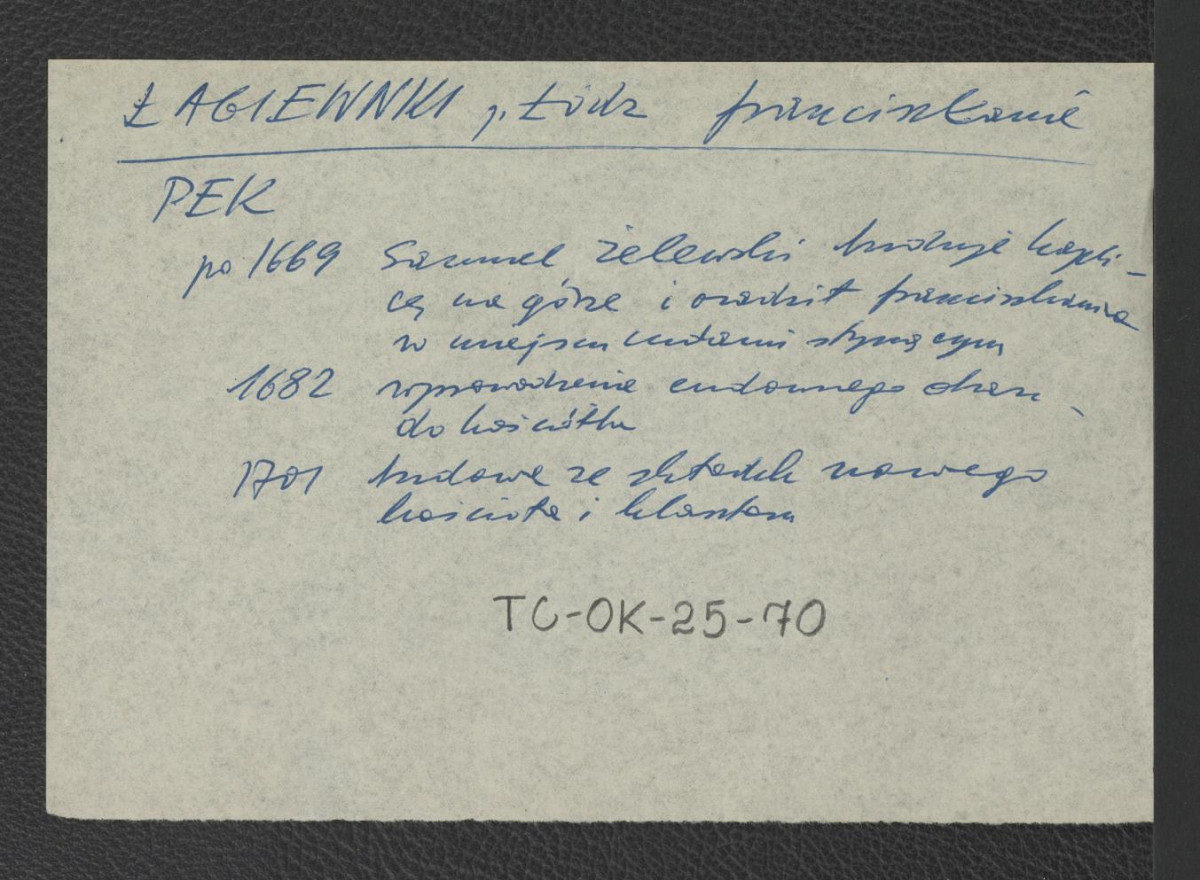 ŁAGIEWNIKI p. Łódz franciszkanie
PEK
po 1669 Samuel Żelewski buduje kapli-
cę na górze i osadził franciszkanina
w miejscu cudami słynącym
1682 wprowadzenie cudownego obrazu
do kościółka
1701 budowa ze składek nowego
kościoła i klasztoru
TC-OK-25-70